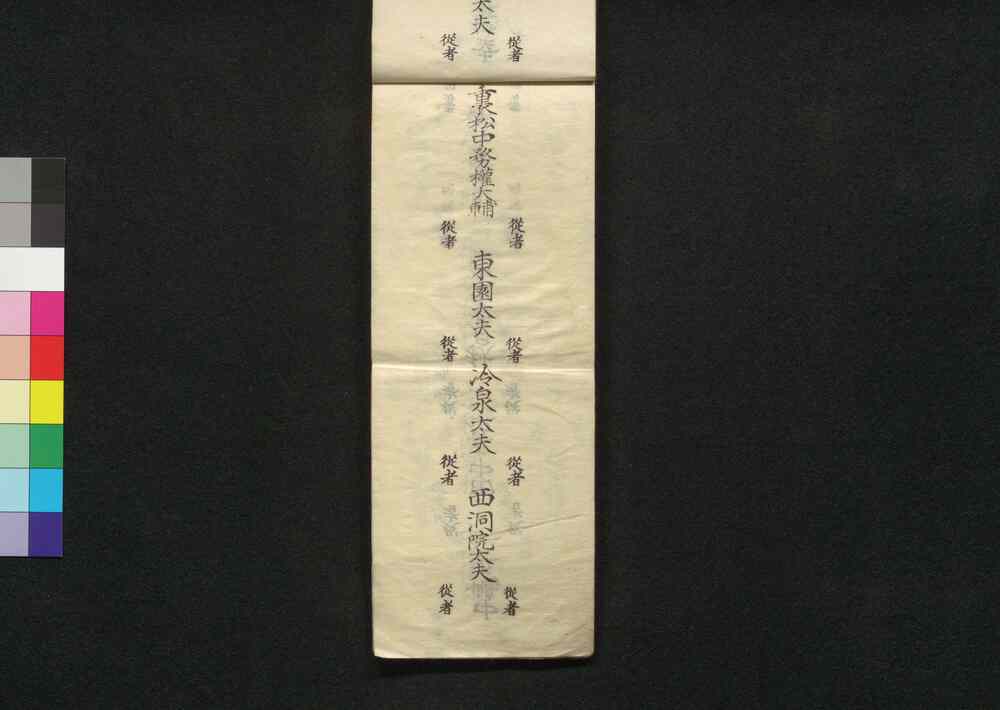 太夫
從者
從者
裏松中務權大輔
從者
從者
東園太夫
從者
從者
冷泉太夫
從者
從者
西洞院太夫
從者
從者